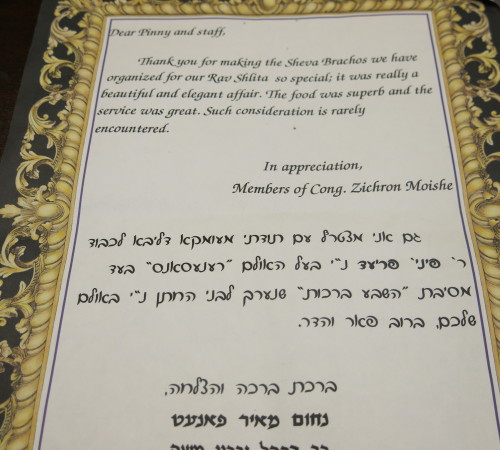 Dear Pinny and staff,
Thank you for making the Sheva Brachos we have
organized for our Rav Shlita so special; it was really a
beautiful and elegant affair. The food was superb and the
service was great. Such consideration is rarely
encountered.
In appreciation,
Members of Cong. Zichron Moishe
גם אני מצטרף עם תודתי מעומקא דליבא לכבוד
ר' פיני' פריעד נ"י בעל האולם "רענעסאנס" בעד
מסיבת "השבע ברכות" שנערך לבני החתן נ"י באולם
שלכם, ברוב פאר והדר.
ברכת ברכה והצלחה,
נחום מאיר פאנעט